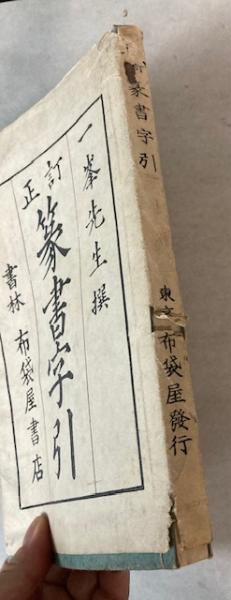 一峯先生撰
訂正
篆書字引
書林 布袋屋書店
篆書字引
東京 布袋屋發行